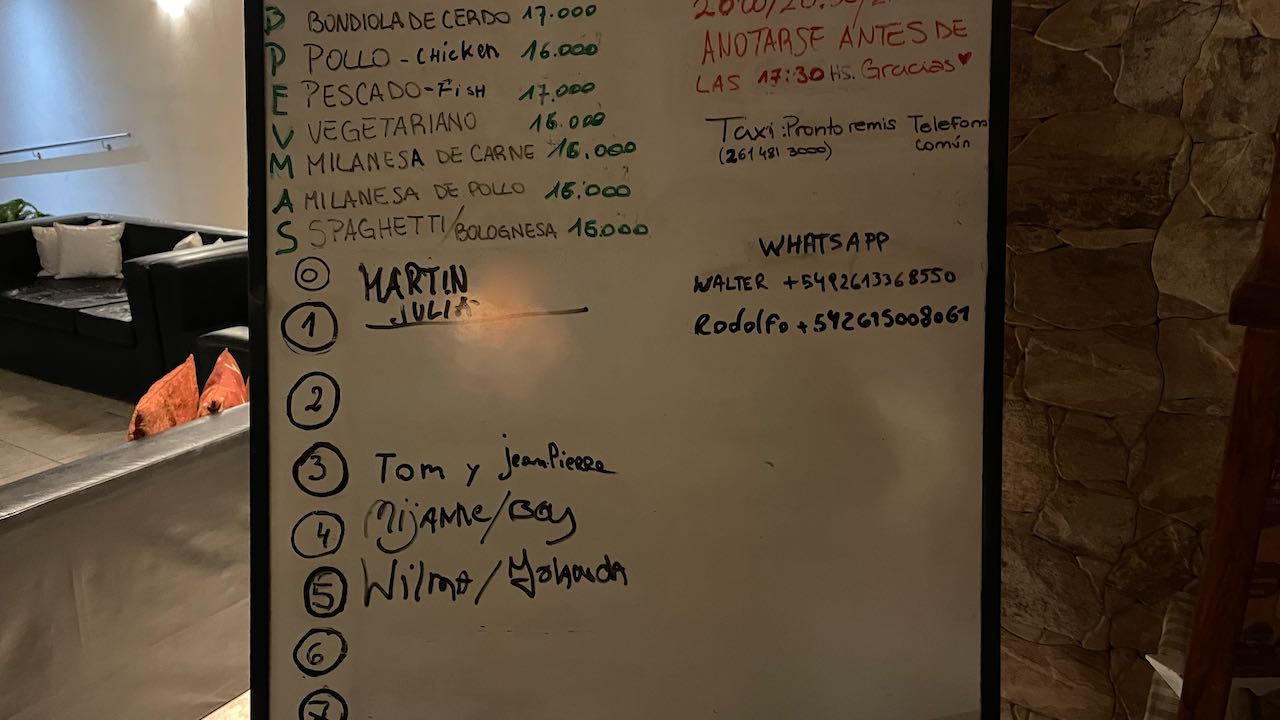 B BONDIOLA DE CERDO 17.000
P POLLO - CHICKEN 16.000
E PESCADO-FISH 17.000
V VEGETARIANO 15.000
M MILANESA DE CARNE 16.000
A MILANESA DE POLLO 15.000
S SPAGHETTI/BOLOGNESA 15.000
ANOTARSE ANTES DE
LAS 17:30 HS. Gracias♥
Taxi: Pronto remis Telefono
(261 481 3000) común
WHATSAPP
WALTER +5492613368550
Rodolfo +542615008061
0 MARTIN
JULIA
1
2
3 Tom y jean Pierre
4 Mijanne/Bey
5 Wilma/Yolanda
6
7